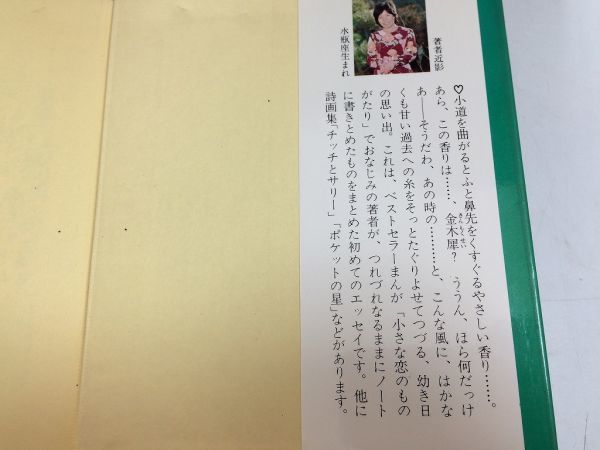 著者近影
水瓶座生まれ
♡小道を曲がるとふと鼻先をくすぐるやさしい香り……。
あら、この香りは……、金木犀？　ううん、ほら何だっけ
きんもくせい
あ——そうだわ、あの時の………と、こんな風に、はかな
くも甘い過去への糸をそっとたぐりよせてつづる、幼き日
の思い出。これは、ベストセラーまんが「小さな恋のもの
がたり」でおなじみの著者が、つれづれなるままにノート
に書きとめたものをまとめた初めてのエッセイです。他に
詩画集「チッチとサリー」「ポケットの星」などがあります。